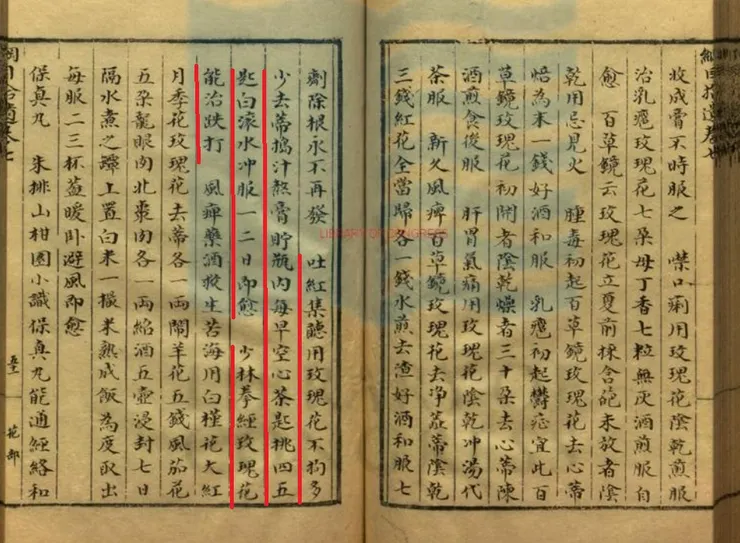 收成膏不時服之　噤口痢用玫瑰花陰乾煎服
治乳癰玫瑰花七朵母丁香七粒無灰酒煎服自
愈　百草鏡云玫瑰花立夏前採含葩未放者陰
乾用忌見火　腫毒初起百草鏡玫瑰花去心蒂
焙為末一錢好酒和服　乳癰初起鬱症宜此百
草鏡玫瑰花初開者陰乾燥者三十朵去心蒂陳
酒煎食後服　肝胃氣痛用玫瑰花陰乾冲湯代
茶服　新久風痹百草鏡玫瑰花去净蕋蒂陰乾
三錢紅花全當歸各一錢水煎去渣好酒和服七
劑除根永不再發　吐紅集聽用玫瑰花不拘多
少去蒂搗汁熬膏貯瓶內每早空心茶匙挑四五
匙白滚水冲服一二日即愈　少林拳經玫瑰花
能治跌打　風痺藥酒救生苦海用白槿花大紅
月季花玫瑰花去蒂各一兩閙羊花五錢風茄花
五朵龍眼肉北棗肉各一兩縐酒五壺浸封七日
隔水煮之罈上置白米一撮米熟成飯為度取出
每服二三杯蓋暖卧避風即愈
保真丸　朱排山柑園小識保真丸能通經絡和
綱目拾遺卷七
花部
LIBRARY OF CONGRESS